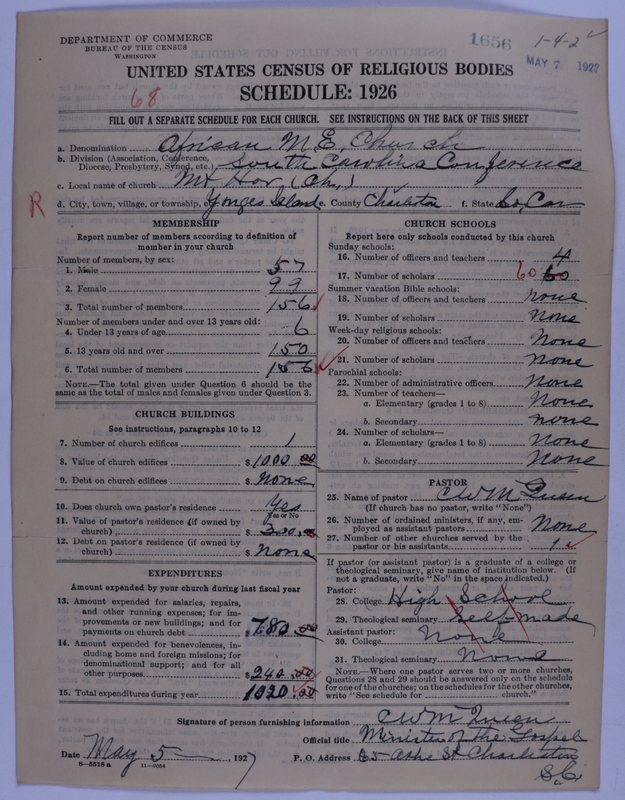 DEPARTMENT OF COMMERCE
BUREAU OF THE CENSUS
WASHINGTON
1656
1-4-2
MAY 7 1927
UNITED STATES CENSUS OF RELIGIOUS BODIES
68
SCHEDULE: 1926
FILL OUT A SEPARATE SCHEDULE FOR EACH CHURCH. SEE INSTRUCTIONS ON THE BACK OF THIS SHEET
a. Denomination African M. E. Church
b. Division (Association, Conference, Diocese, Presbytery, Synod, etc.) South Carolina Conference
c. Local name of church Mt Hor, (Ch.)
R
d. City, town, village, or township, Yonges Island e. County Charleston f. State So, Car
MEMBERSHIP
Report number of members according to definition of
member in your church
Number of members, by sex:
1. Male 57
2. Female 99
3. Total number of members 156
Number of members under and over 13 years old:
4. Under 13 years of age 6
5. 13 years old and over 150
6. Total number of members 156
NOTE.—The total given under Question 6 should be the
same as the total of males and females given under Question 3.
CHURCH BUILDINGS
See instructions, paragraphs 10 to 12
7. Number of church edifices 1
8. Value of church edifices $1000.00
9. Debt on church edifices $None
10. Does church own pastor's residence? Yes
Yes or No
11. Value of pastor's residence (if owned by
church) $300.00
12. Debt on pastor's residence (if owned by
church) $None
EXPENDITURES
Amount expended by your church during last fiscal year
13. Amount expended for salaries, repairs,
and other running expenses; for im-
provements or new buildings; and for
payments on church debt $780.00
14. Amount expended for benevolences, in-
cluding home and foreign missions; for
denominational support; and for all
other purposes $240.00
15. Total expenditures during year 1020.00
CHURCH SCHOOLS
Report here only schools conducted by this church
Sunday schools:
16. Number of officers and teachers 4
17. Number of scholars 60 60
Summer vacation Bible schools:
18. Number of officers and teachers none
19. Number of scholars None
Week-day religious schools:
20. Number of officers and teachers None
21. Number of scholars None
Parochial schools:
22. Number of administrative officers None
23. Number of teachers—
a. Elementary (grades 1 to 8) None
b. Secondary none
24. Number of scholars—
a. Elementary (grades 1 to 8) None
b. Secondary None
PASTOR
25. Name of pastor C W McQueen
(If church has no pastor, write "None")
26. Number of ordained ministers, if any, em-
ployed as assistant pastors None
27. Number of other churches served by the
pastor or his assistants 1
If pastor (or assistant pastor) is a graduate of a college or
theological seminary, give name of institution below. (If
not a graduate, write "No" in the space indicated.)
Pastor:
28. College High School
29. Theological seminary Self-made
Assistant pastor:
30. College None
31. Theological seminary None
NOTE.—Where one pastor serves two or more churches,
Questions 28 and 29 should be answered only on the schedule
for one of the churches; on the schedules for the other churches,
write "See schedule for church."
Signature of person furnishing information C W McQueen
Official title Minister of the Gospel
Date May 5, 1927 P. O. Address 65 Ashe St Charleston
S.C.
8-5518 a